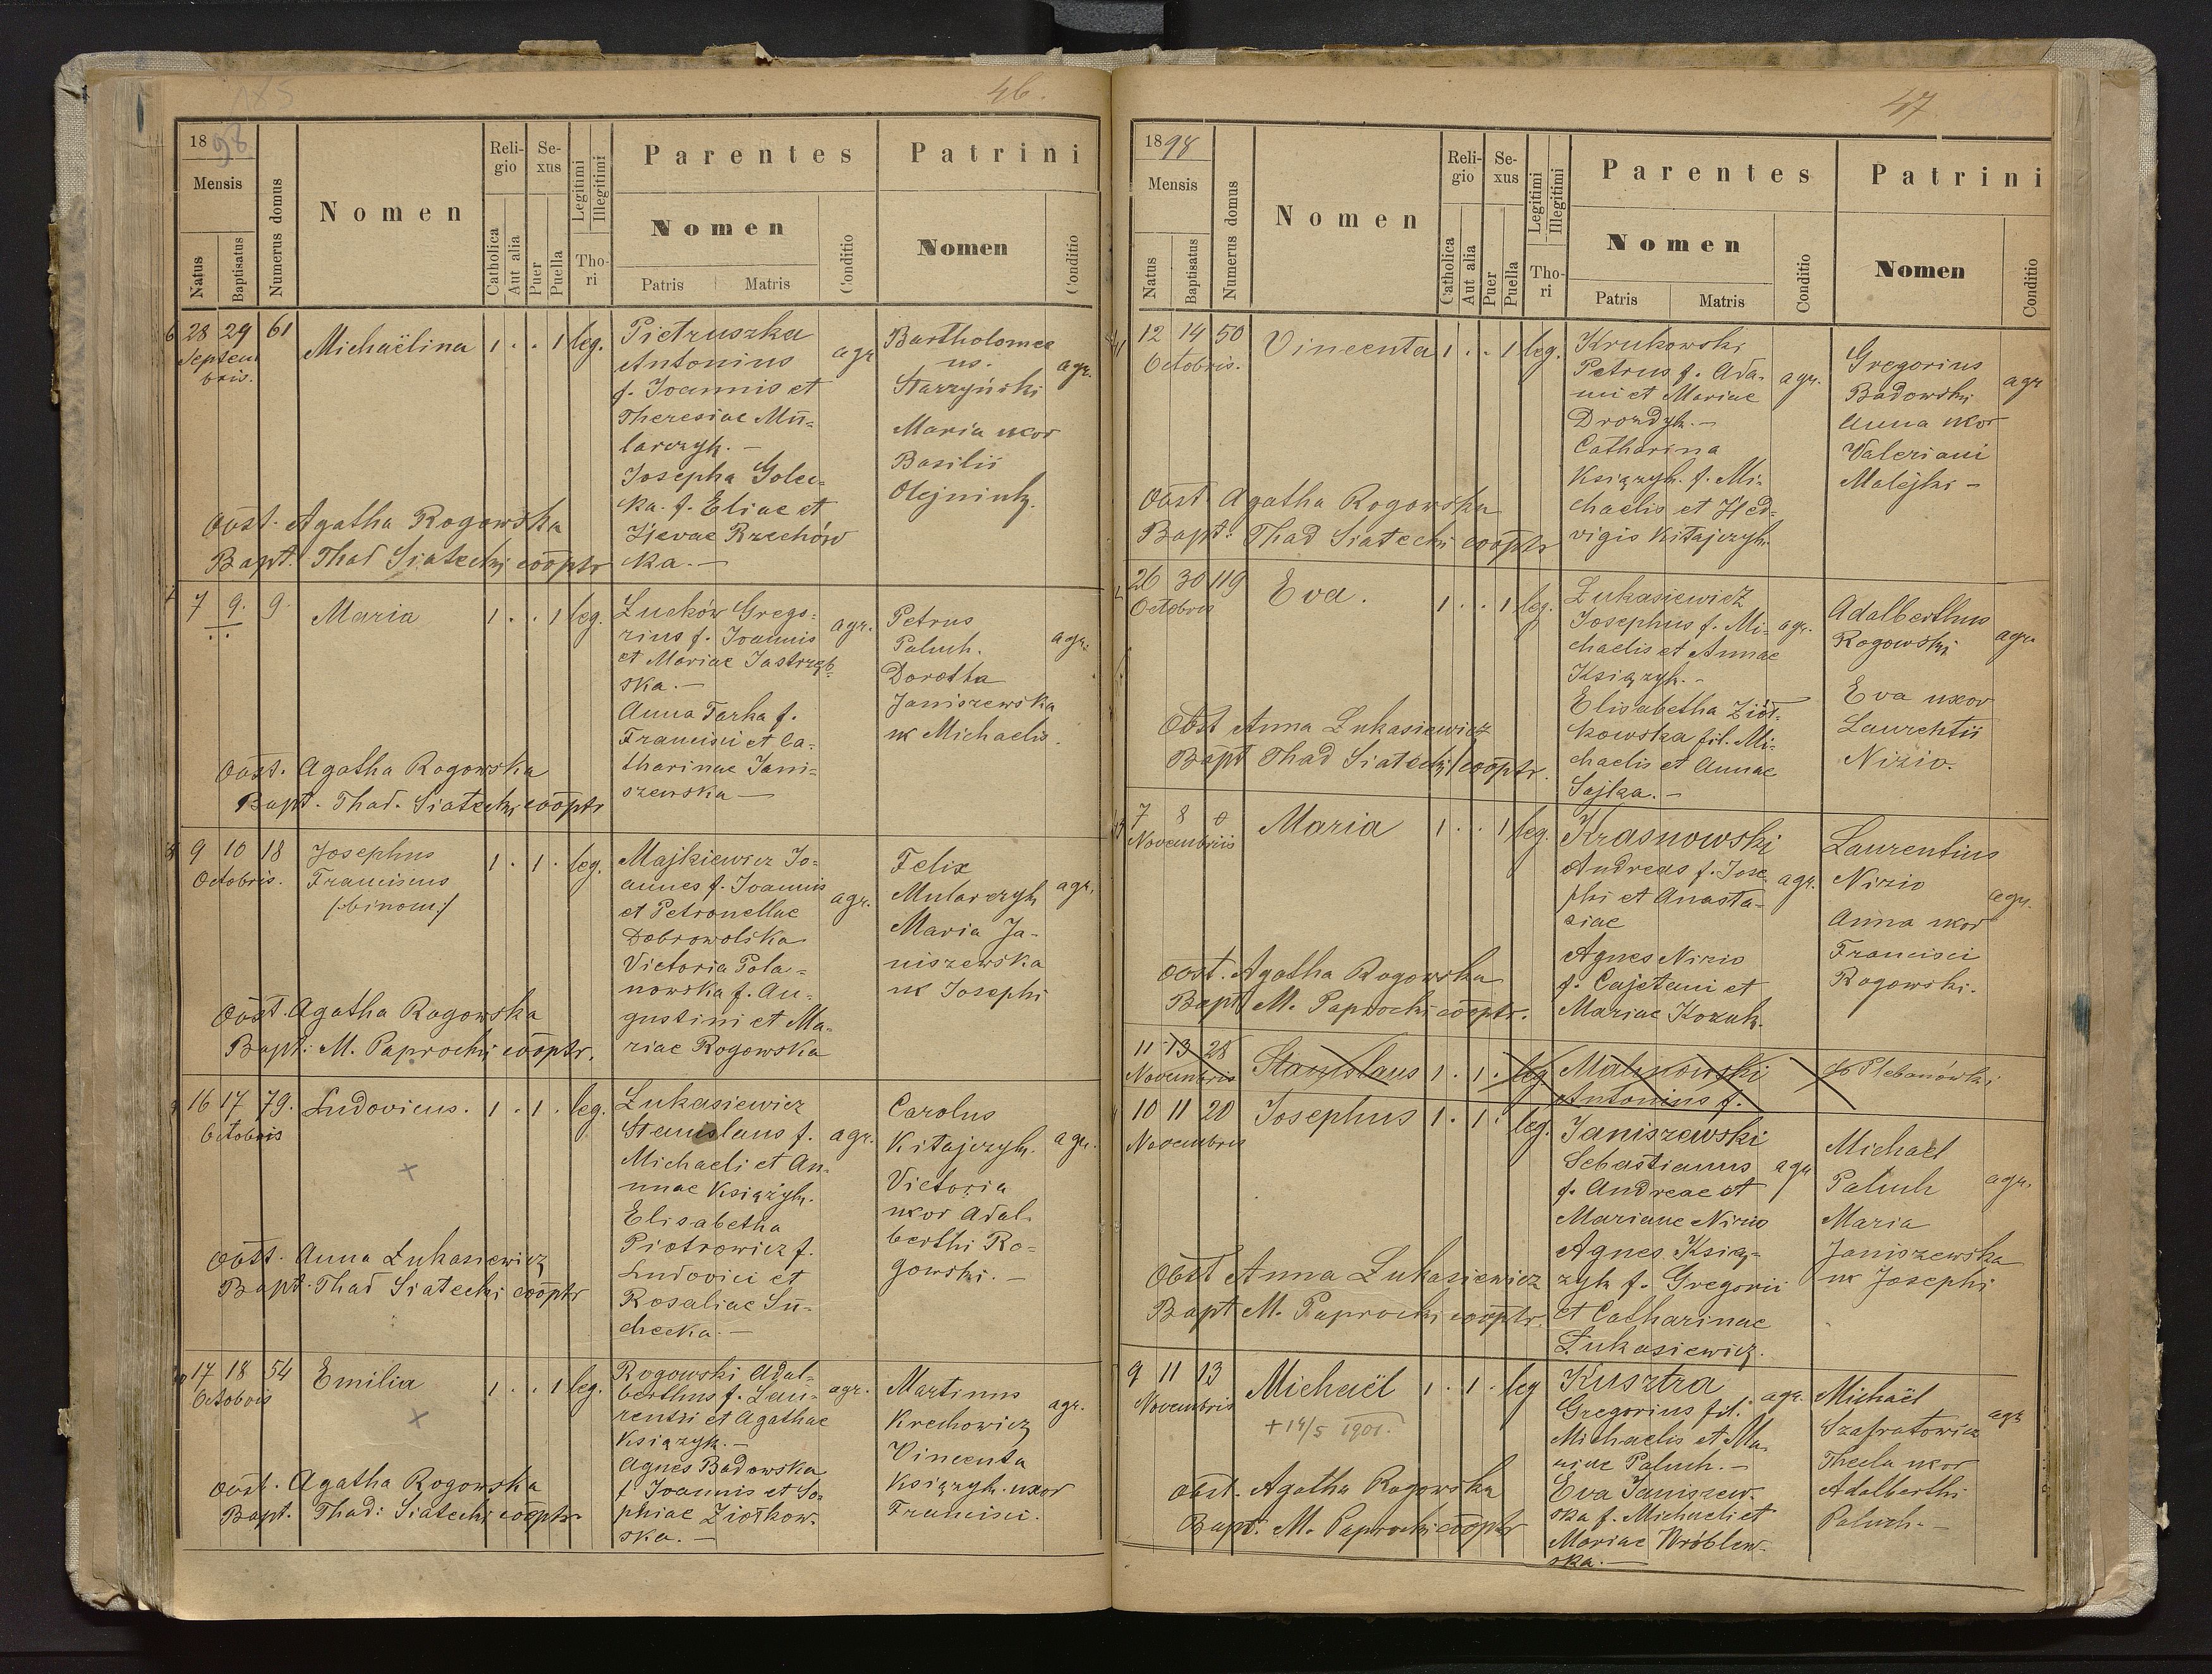 185
46.
1898
Mensis
Natus
Baptisatus
Numerus domus
Nomen
Religio
Catholica
Aut alia
Sexus
Puer
Puella
Legitimi
Illegitimi
Thori
Parentes
Nomen
Patris
Matris
Conditio
Patrini
Nomen
Conditio
6 28 29 61 Michaëlina 1 . . 1 leg.
Septem
bris.
Pietruszka
Antonius
f. Joannis et
Theresiae Mü-
larczyk. —
Josepha Golec-
ka. f. Eliae et
Rzechów
ka. —
agr
Bartholomee
us.
Starzyński
Maria uxor
Basilii
Olejniuk.
agr.
Obst. Agatha Rogowska
Bapt. Thad Siatecki cooptr
7 7 9. 9. Maria 1 . . 1 leg.
Luców Grego-
rius f. Joannis
et Mariae Jastrzęb-
ska. —
Anna Tarka f.
Francisci et Ca-
tharinae Jani-
szewska —
agr.
Petrus
Paluch.
Dorotha
Janiszewska
ux Michaelis.
agr.
Obst. Agatha Rogowska
Bapt. Thad. Siatecki cooptr
8 9 10 18 Josephus 1 . 1 . leg.
Octobris. Franciscus
/:binom:/
Majkiewicz Jo-
annes f. Joannis
et Petronellae
Dobrowolska
Victoria Pola-
nowska f. Au-
gustini et Ma-
riae Rogowska
agr.
Felix
Mularczyk
Maria Ja-
niszewska
ux Josephi
agr.
Obst. Agatha Rogowska
Bapt: M. Paprocki cooptr.
9 16 17 79. Ludovicus. 1 . 1 . leg.
Octobris
Łukasiewicz
Stanislaus f.
Michaeli et An-
nae Książyk.
Elisabetha
Piotrowicz f.
Ludovici et
Rosaliae Su-
checka. —
agr.
Carolus
Kitajczyk.
Victoria
uxor Adal-
berthi Ro-
gowski. —
agr.
Obst. Anna Łukasiewicz
Bapt. Thad Siatecki cooptr
10 17 18 54 Emilia 1 . . 1 leg.
Octobris
Rogowski Adal-
berthus f. Lau-
rentii et Agathae
Książyk. —
Agnes Badowska
f. Joannis et So-
phiae Ziółkow-
ska. —
agr.
Martinus
Krechowicz
Vincenta
Książyk. uxor
Francisci.
agr.
Obst. Agatha Rogowska
Bapt. Thad: Siatecki cooptr.
47.
1898
Mensis
Natus
Baptisatus
Numerus domus
Nomen
Religio
Catholica
Aut alia
Sexus
Puer
Puella
Legitimi
Illegitimi
Thori
Parentes
Nomen
Patris
Matris
Conditio
Patrini
Nomen
Conditio
12 14 50 Vincenta 1 . . 1 leg.
Octobris.
Krukowski
Petrus f. Ada-
mi et Mariae
Drozdyk. —
Catharina
Książyk. f. Mi-
chaelis et Hed-
vigis Kitajczyk.
agr.
Gregorius
Badowski
Anna uxor
Valeriani
Malejki —
agr
Obst. Agatha Rogowska
Bapt: Thad Siatecki cooptr
26 30 119 Eva. 1 . . 1 leg.
Octobris
Łukasiewicz
Josephus f. Mi-
chaelis et Annae
Książyk. —
Elisabetha Ziół-
kowska fil. Mi-
chaelis et Annae
Sajka. —
agr.
Adalberthus
Rogowski
Eva uxor
Laurentii
Nizio.
agr.
Obst Anna Łukasiewicz
Bapt Thad Siatecki cooptr.
7 8 0 Maria 1 . . 1 leg.
Novembris
Krasnowski
Andreas f. Jose
phi et Anasta-
siae
Agnes Nizio
f. Cajetani et
Mariae Kozak.
agr.
Laurentius
Nizio
Anna uxor
Francisci
Rogowski.
agr.
Obst. Agatha Rogowska
Bapt M. Paprocki cooptr.
11 13 28 Stanislaus 1 . 1 . leg
Novembris
Malinowski
Antonius f.
do Plebanówki
10 11 20 Josephus 1 . 1 . leg.
Novembris
Janiszewski
Sebastianus
f. Andreae et
Marianae Nizio
Agnes Ksią-
zyk f. Gregorii
et Catharinae
Łukasiewicz.
agr
Michael
Paluch
Maria
Janiszewska
ux Josephi
agr.
Obst Anna Łukasiewicz
Bapt M. Paprocki cooptr.
9 11 13 Michaël 1 . 1 . leg
Novembris
+ 14/5 1901.
Kusztra
Gregorius fil.
Michaelis et Ma-
riae Paluch. —
Eva Janiszew-
ska f. Michaeli et
Mariae Wróblew-
ska. —
agr.
Michaël
Szafratowicz
Thecla uxor
Adalberthi
Paluch. —
agr
Obst. Agatha Rogowska
Bapt. M. Paprocki cooptr